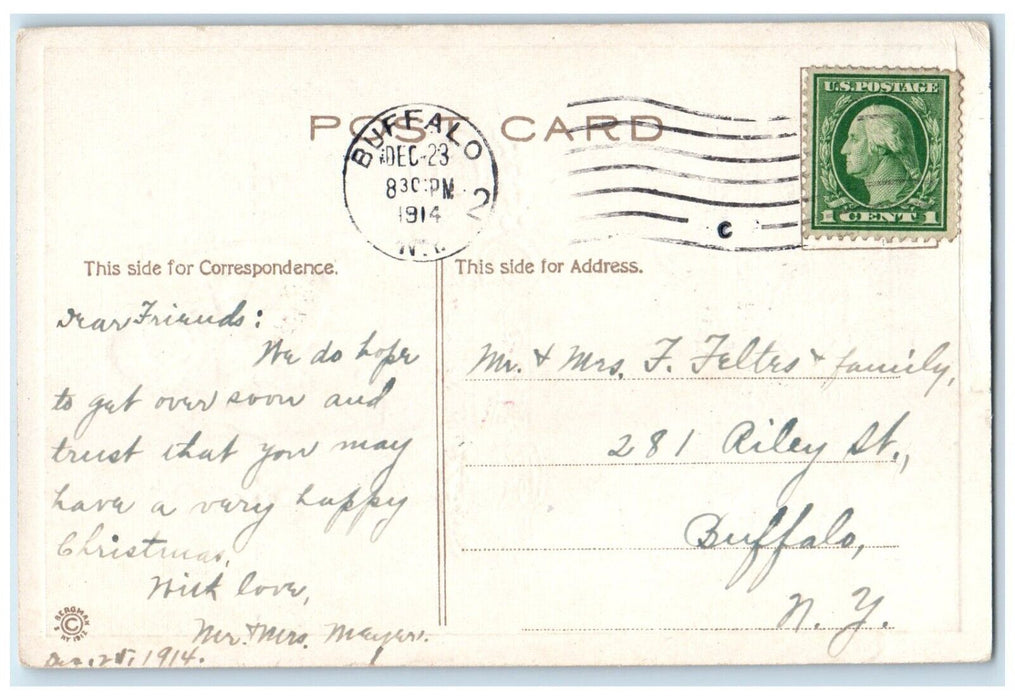 POST CARD
BUFFALO
DEC-23
830 PM
1914
N.Y.
2
C
U.S. POSTAGE
1 CENT 1
This side for Correspondence.
Dear Friends:
We do hope
to get over soon and
trust that you may
have a very happy
Christmas,
With love,
Mr. & Mrs. Meyer.
1914.
S. BERGMAN
©
NY 1912
This side for Address.
Mr. & Mrs. F. Feltes & family,
281 Riley St.,
Buffalo,
N. Y.